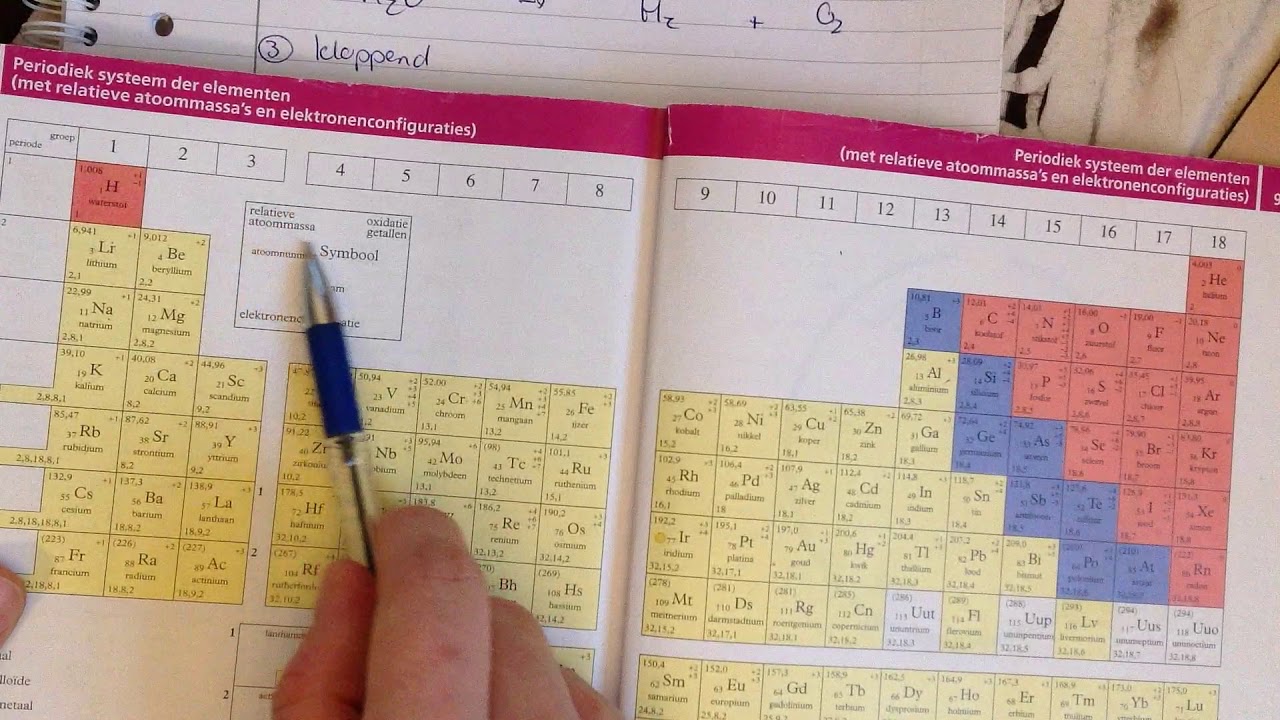 H₂ + O₂
③ kloppend
Periodiek systeem der elementen
(met relatieve atoommassa's en elektronenconfiguraties)
Periodiek systeem der elementen
(met relatieve atoommassa's en elektronenconfiguraties)
groep
periode
1 2 3 4 5 6 7 8 9 10 11 12 13 14 15 16 17 18
relatieve atoommassa
oxidatie getallen
Symbool
1
1,008 +1 -1
1 H
waterstof
1
4,003 0
2 He
helium
2
2
6,941 +1
3 Li
lithium
2,1
9,012 +2
4 Be
beryllium
2,2
10,81 +3
5 B
boor
2,3
12,01
6 C
koolstof
2,4
14,01
7 N
stikstof
2,5
16,00
8 O
zuurstof
2,6
19,00 -1
9 F
fluor
2,7
20,18 0
10 Ne
neon
2,8
22,99 +1
11 Na
natrium
2,8,1
24,31 +2
12 Mg
magnesium
2,8,2
26,98 +3
13 Al
aluminium
2,8,3
28,09
14 Si
silicium
2,8,4
30,97
15 P
fosfor
2,8,5
32,06
16 S
zwavel
2,8,6
35,45
17 Cl
chloor
2,8,7
39,95
18 Ar
argon
2,8,8
39,10 +1
19 K
kalium
2,8,8,1
40,08 +2
20 Ca
calcium
8,2
44,96 +3
21 Sc
scandium
9,2
10,2
50,94
23 V
vanadium
52,00
24 Cr
chroom
13,1
54,94
25 Mn
mangaan
13,2
55,85
26 Fe
ijzer
14,2
58,93
27 Co
kobalt
15,2
58,69
28 Ni
nikkel
16,2
63,55
29 Cu
koper
18,1
65,38
30 Zn
zink
18,2
69,72
31 Ga
gallium
18,3
72,64
32 Ge
germanium
18,4
74,92
33 As
arseen
18,5
78,96
34 Se
seleen
18,6
79,90
35 Br
broom
18,7
83,80
36 Kr
krypton
18,8
85,47 +1
37 Rb
rubidium
2,8,18,8,1
87,62 +2
38 Sr
strontium
8,2
88,91 +3
39 Y
yttrium
9,2
91,22
40 Zr
10,2
Nb
95,94
42 Mo
molybdeen
13,1
(98)
43 Tc
technetium
13,2
101,1
44 Ru
ruthenium
15,1
102,9
45 Rh
rhodium
16,1
106,4
46 Pd
palladium
18
107,9
47 Ag
zilver
18,1
112,4
48 Cd
cadmium
18,2
114,8
49 In
indium
18,3
118,7
50 Sn
tin
18,4
121,8
51 Sb
antimoon
18,5
127,6
52 Te
telluur
18,6
126,9
53 I
jood
18,7
131,3
54 Xe
xenon
18,8
132,9 +1
55 Cs
cesium
2,8,18,18,8,1
137,3 +2
56 Ba
barium
18,8,2
138,9 +3
57 La
lanthaan
18,9,2
1
178,5
72 Hf
hafnium
32,10,2
183,8
186,2
75 Re
renium
32,13,2
190,2
76 Os
osmium
32,14,2
192,2
77 Ir
iridium
32,15,2
195,1
78 Pt
platina
32,17,1
197,0
79 Au
goud
32,18,1
200,6
80 Hg
kwik
32,18,2
204,4
81 Tl
thallium
32,18,3
207,2
82 Pb
lood
32,18,4
209,0
83 Bi
bismut
32,18,5
(209)
84 Po
polonium
32,18,6
(210)
85 At
astaat
32,18,7
(222)
86 Rn
radon
32,18,8
(223) +1
87 Fr
francium
2,18,8,1
(226) +2
88 Ra
radium
18,8,2
(227) +3
89 Ac
actinium
18,9,2
2
(267)
104 Rf
32,10,2
Bh
(269)
108 Hs
hassium
32,14,2
(278)
109 Mt
meitnerium
32,15,2
(281)
110 Ds
darmstadtium
32,17,1
(281)
111 Rg
roentgenium
32,18,1
(285)
112 Cn
copernicium
32,18,2
(286)
113 Uut
ununtrium
32,18,3
(289)
114 Fl
flerovium
32,18,4
(288)
115 Uup
ununpentium
32,18,5
(293)
116 Lv
livermorium
32,18,6
(294)
117 Uus
ununseptium
32,18,7
(294)
118 Uuo
ununoctium
32,18,8
1
2
150,4
62 Sm
samarium
24,8,2
152,0
63 Eu
europium
25,8,2
157,3
64 Gd
gadolinium
158,9
65 Tb
terbium
162,5
66 Dy
dysprosium
164,9
67 Ho
holmium
167,3
68 Er
erbium
168,9
69 Tm
thulium
173,0
70 Yb
175,0
71 Lu